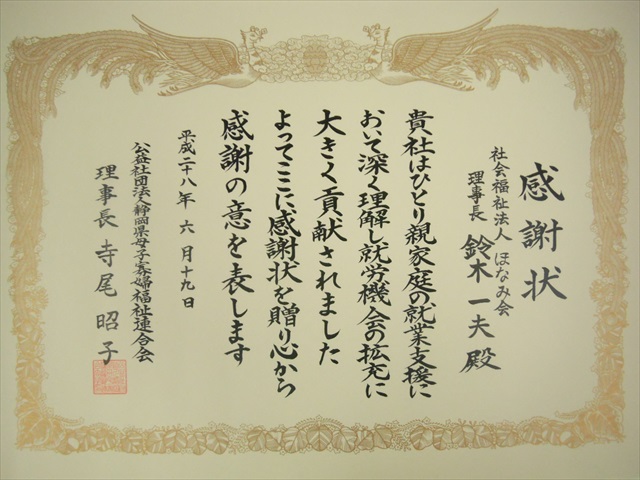 感謝状
社会福祉法人 ほなみ会
理事長 鈴木一夫殿
貴社はひとり親家庭の就業支援に
おいて深く理解し就労機会の拡充に
大きく貢献されました
よってここに感謝状を贈り心から
感謝の意を表します
平成二十八年 六月十九日
公益社団法人静岡県母子寡婦福祉連合会
理事長 寺尾昭子